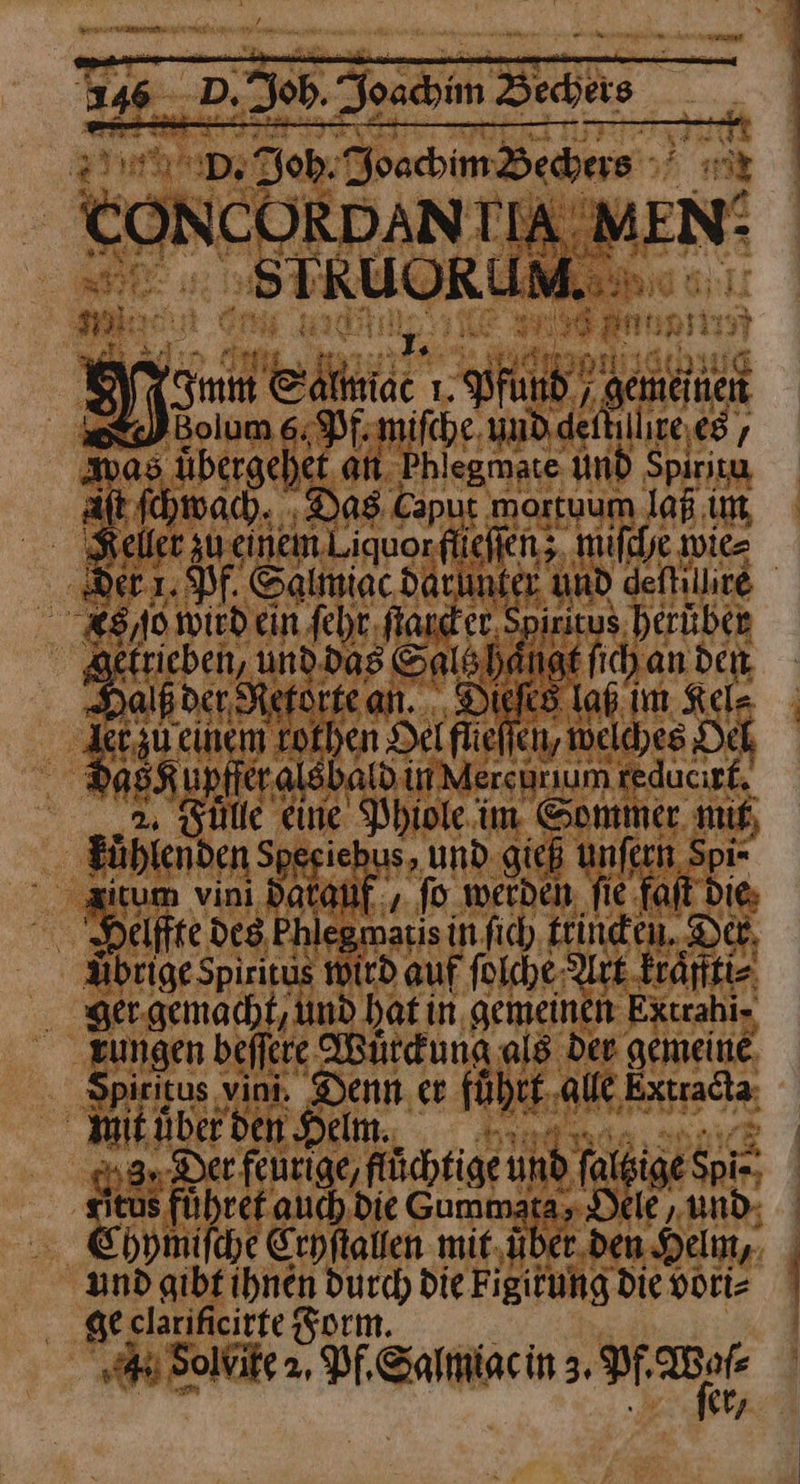 146 D. Joh. Joachim Bechers
D. Joh. Joachim Bechers
CONCORDANTIA MEN-
STRUORUM.
I.
NImm Salmiac 1. Pfund / gemeinen
Bolum 6. Pf. miſche und deſtillire es /
was uͤbergehet an Phlegmate und Spiritu
iſt ſchwach. Das Caput mortuum laß im
Keller zu einem Liquor flieſſen; miſche wie⸗
der 1. Pf. Salmiac darunter und deſtillire
es / ſo wird ein ſehr ſtarcker Spiritus heruͤber
getrieben, und das Saltz haͤngt ſich an den
Halß der Retorte an. Dieſes laß im Kel⸗
ler zu einem rothen Oel flieſſen, welches Oel
das Kupffer alsbald in Mercurium reducirt.
2. Fuͤlle eine Phiole im Sommer mit
kuͤhlenden Speciebus, und gieß unſern Spi-
ritum vini darauf, ſo werden ſie faſt die
Helffte des Phlegmatis in ſich trincken. Der
uͤbrige Spiritus wird auf ſolche Art kraͤffti⸗
ger gemacht, und hat in gemeinen Extrahi-
rungen beſſere Wuͤrckung als der gemeine
Spiritus vini. Denn er fuͤhrt alle Extracta
mit uͤber den Helm.
3. Der feurige, fluͤchtige und ſaltzige Spi-
ritus fuͤhret auch die Gummata, Oele, und
Chymiſche Cryſtallen mit uͤber den Helm,
und gibt ihnen durch die Figirung die vori⸗
ge clarificirte Form.
4. Solvire 2. Pf. Salmiac in 3. Pf. Waſ⸗
ſer,